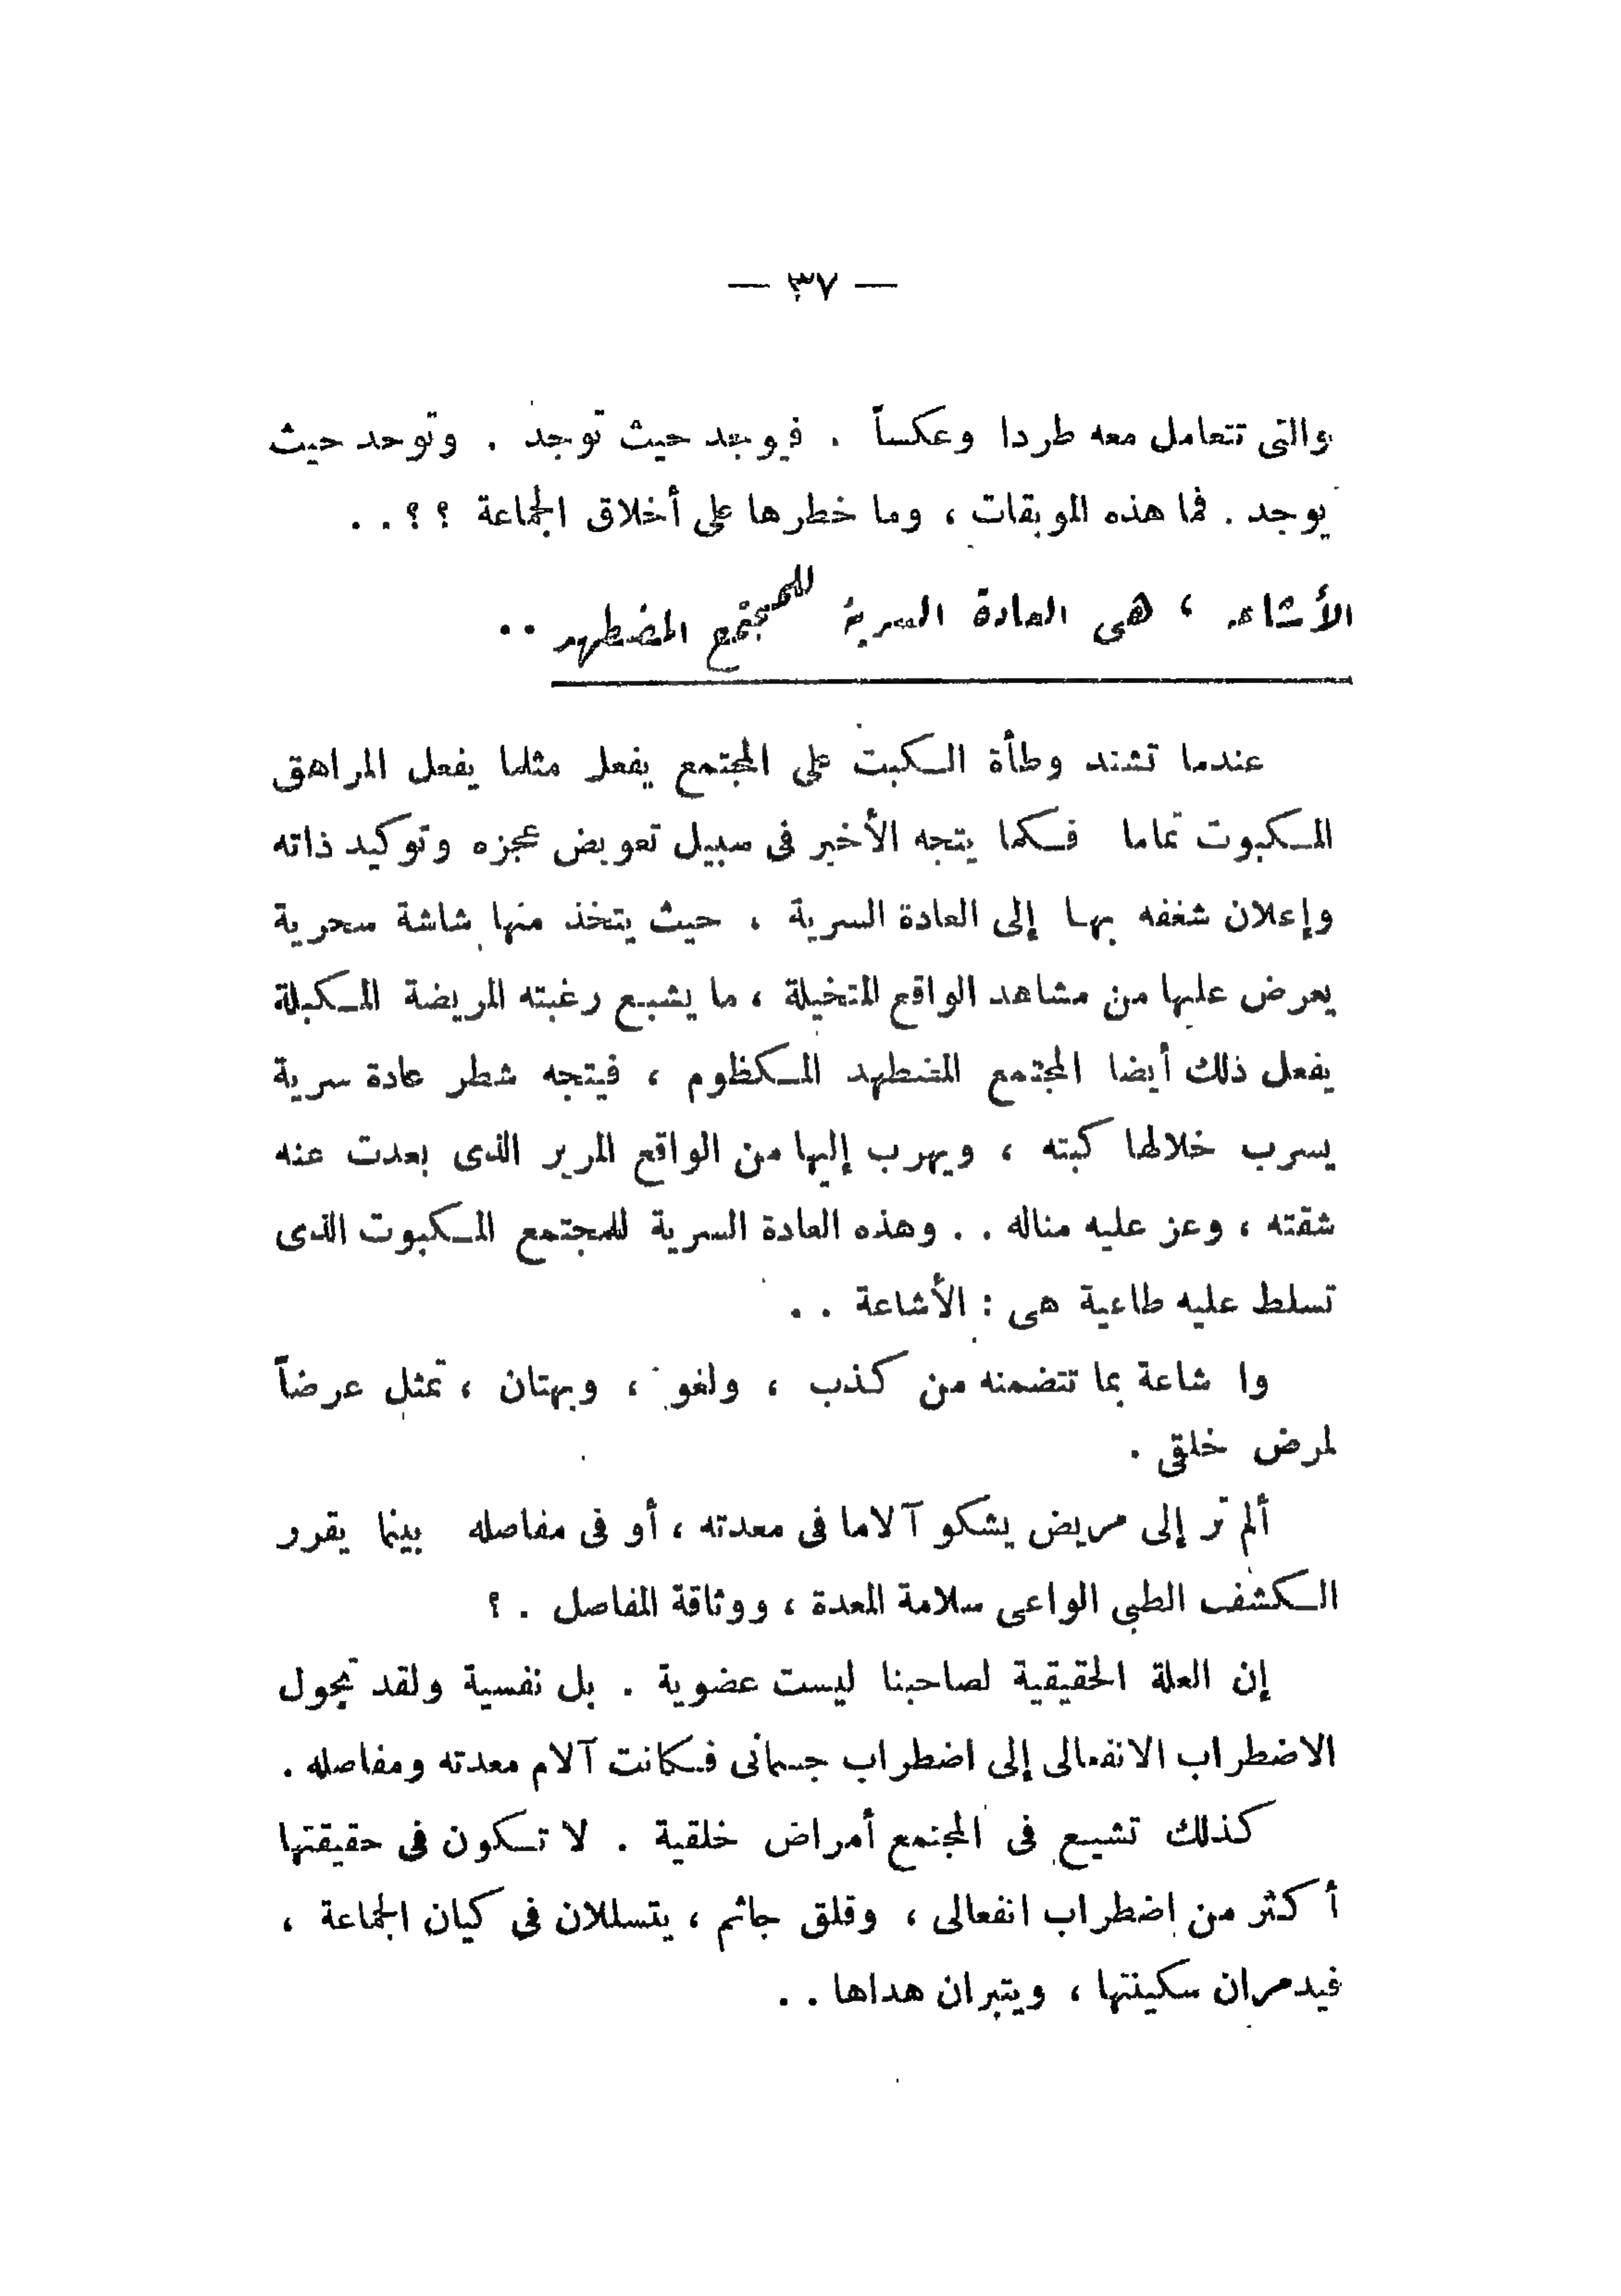 — ٣٧ —
والتى تتعامل معه طردا وعكساً . فيوجد حيث توجد . وتوحد حيث
يوجد . فما هذه الموبقات ، وما خطرها على أخلاق الجماعة ؟ ؟ . .
الأشاعه ، هى العادة السرية للمجتمع المضطهد ..
عندما تشتد وطأة الكبت على المجتمع يفعل مثلما يفعل المراهق
المكبوت تماما فكما يتجه الأخير فى سبيل تعويض عجزه وتوكيد ذاته
وإعلان شغفه بها إلى العادة السرية . حيث يتخذ منها شاشة سحرية
يعرض عليها من مشاهد الواقع المتخيلة ، ما يشبع رغبته المريضة المكبلة
يفعل ذلك أيضا المجتمع المضطهد المكظوم ، فيتجه شطر عادة سرية
يسرب خلالها كبته ، ويهرب إليها من الواقع المرير الذى بعدت عنه
شقته ، وعز عليه مناله . . وهذه العادة السرية للمجتمع المكبوت الذى
تسلط عليه طاعية هى : الأشاعة . .
وا شاعة بما تتضمنه من كذب ، ولغو ، وبهتان ، تمثل عرضاً
لمرض خلقى .
ألم تر إلى مريض يشكو آلاما فى معدته ، أو فى مفاصله بينما يقرر
الكشف الطبى الواعى سلامة المعدة ، ووثاقة المفاصل . ؟
إن العلة الحقيقية لصاحبنا ليست عضوية . بل نفسية ولقد تحول
الاضطراب الانفعالى إلى اضطراب جسمانى فكانت آلام معدته ومفاصله .
كذلك تشيع فى المجتمع أمراض خلقية . لا تكون فى حقيقتها
أكثر من إضطراب انفعالى ، وقلق جاثم ، يتسللان فى كيان الجماعة ،
فيدمران سكينتها ، ويتبران هداها . .